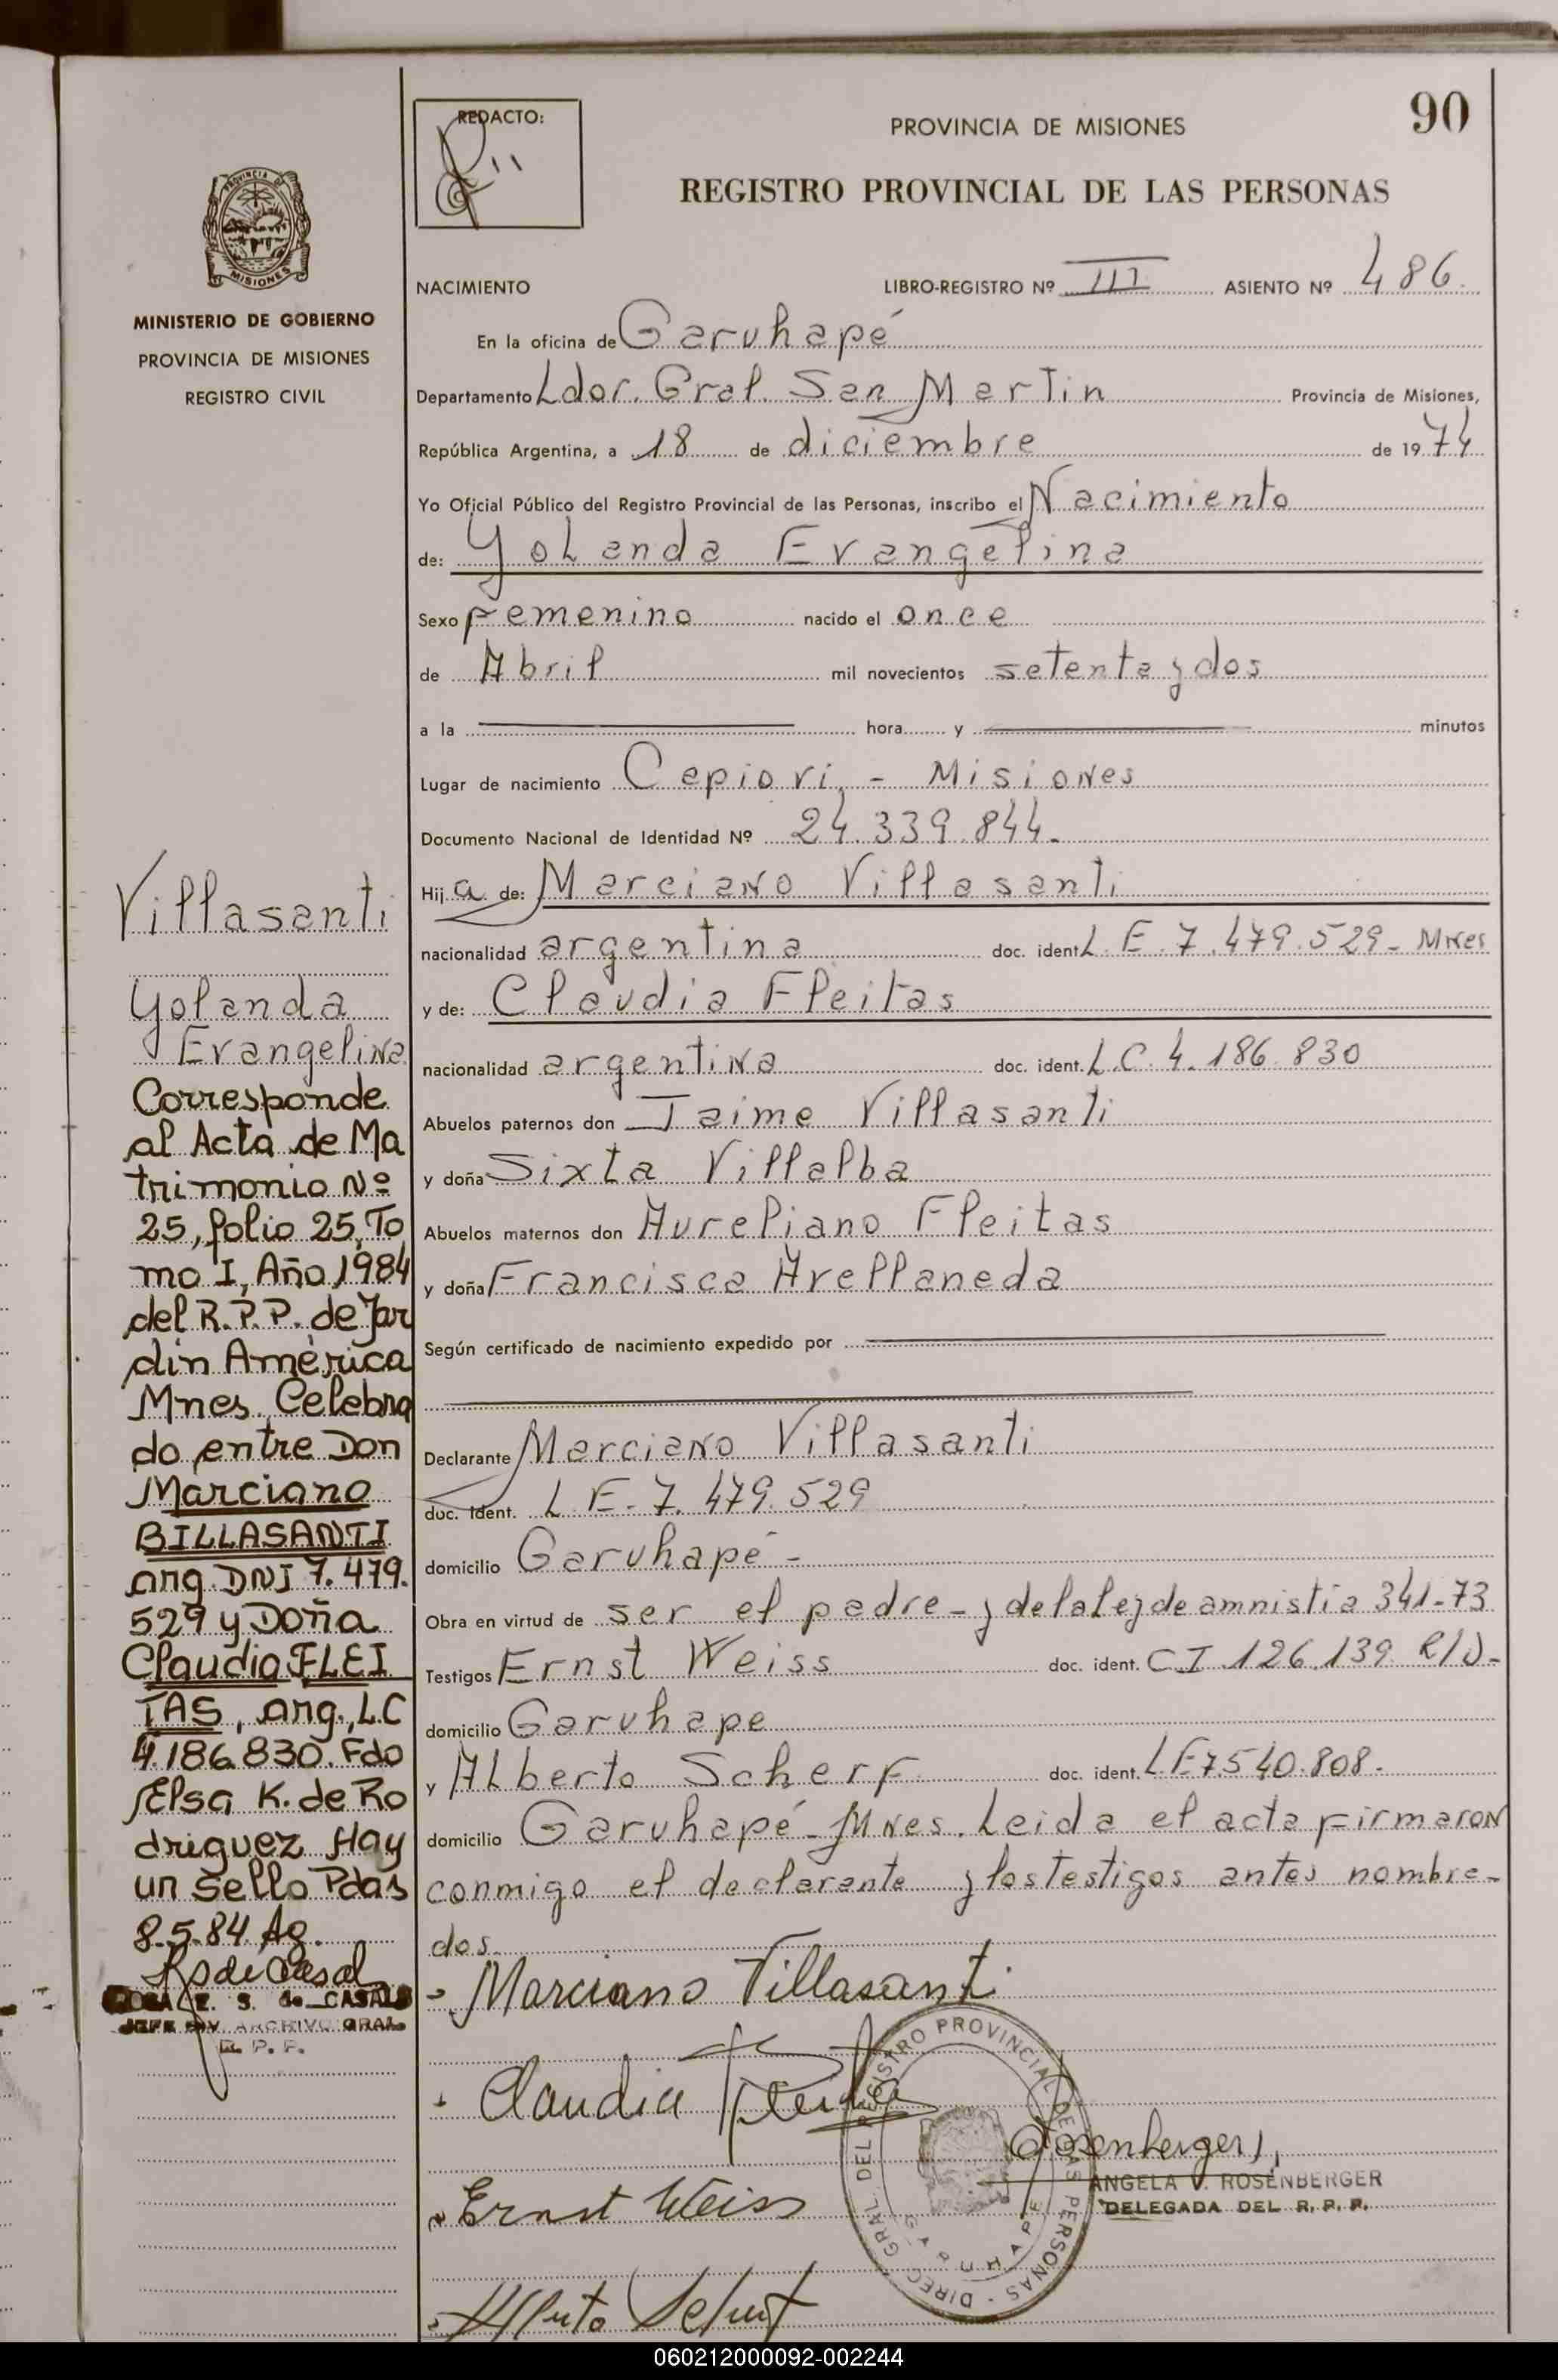 REDACTO:
PROVINCIA DE MISIONES
90
REGISTRO PROVINCIAL DE LAS PERSONAS
PROVINCIA DE
MISIONES
MINISTERIO DE GOBIERNO
PROVINCIA DE MISIONES
REGISTRO CIVIL
NACIMIENTO LIBRO-REGISTRO Nº III ASIENTO Nº 486.
En la oficina de Garuhapé
Departamento Ldor. Gral. San Martin Provincia de Misiones,
República Argentina, a 18 de diciembre de 1974
Yo Oficial Público del Registro Provincial de las Personas, inscribo el Nacimiento
de: Yolanda Evangelina
Sexo femenino nacido el once
de Abril mil novecientos setenta y dos
a la hora y minutos
Lugar de nacimiento Capiovi - Misiones
Documento Nacional de Identidad Nº 24.339.844.
Hija de: Marciano Villasanti
nacionalidad argentina doc. ident. L.E. 7.479.529- Mnes
y de: Claudia Fleitas
nacionalidad argentina doc. ident. L.C. 4.186.830
Abuelos paternos don Jaime Villasanti
y doña Sixta Villalba
Abuelos maternos don Aureliano Fleitas
y doña Francisca Avellaneda
Según certificado de nacimiento expedido por
Declarante Marciano Villasanti
doc. ident. L.E. 7.479.529
domicilio Garuhapé -
Obra en virtud de ser el padre - y de la ley de amnistia 341-73
Testigos Ernst Weiss doc. ident. CI 126.139
domicilio Garuhape
y Alberto Scherf doc. ident. LE 7.540.808.
domicilio Garuhapé - Mnes. Leida el acta firmaron
conmigo el declarante y los testigos antes nombra-
dos.
Marciano Villasanti
Claudia Fleitas
Ernst Weiss
Alberto Scherf
Rosenberger
ANGELA V. ROSENBERGER
DELEGADA DEL R. P. P.
DIREC. GRAL. DEL REGISTRO PROVINCIAL DE LAS PERSONAS
GARUHAPE
Villasanti
Yolanda
Evangelina
Corresponde
al Acta de Ma
trimonio Nº
25, folio 25, To
mo I, Año 1984
del R.P.P. de Jar
din América
Mnes. Celebra
do entre Don
Marciano
BILLASANTI
arg. DNI 7.479.
529 y Doña
Claudia FLEI
TAS, arg., L.C
4.186.830. Fdo
Elsa K. de Ro
driguez Hay
un sello Pdas
8.5.84 Ag.
R. S. de CASALS
JEFE DIV. ARCHIVO GRAL.
R. P. P.
060212000092-002244